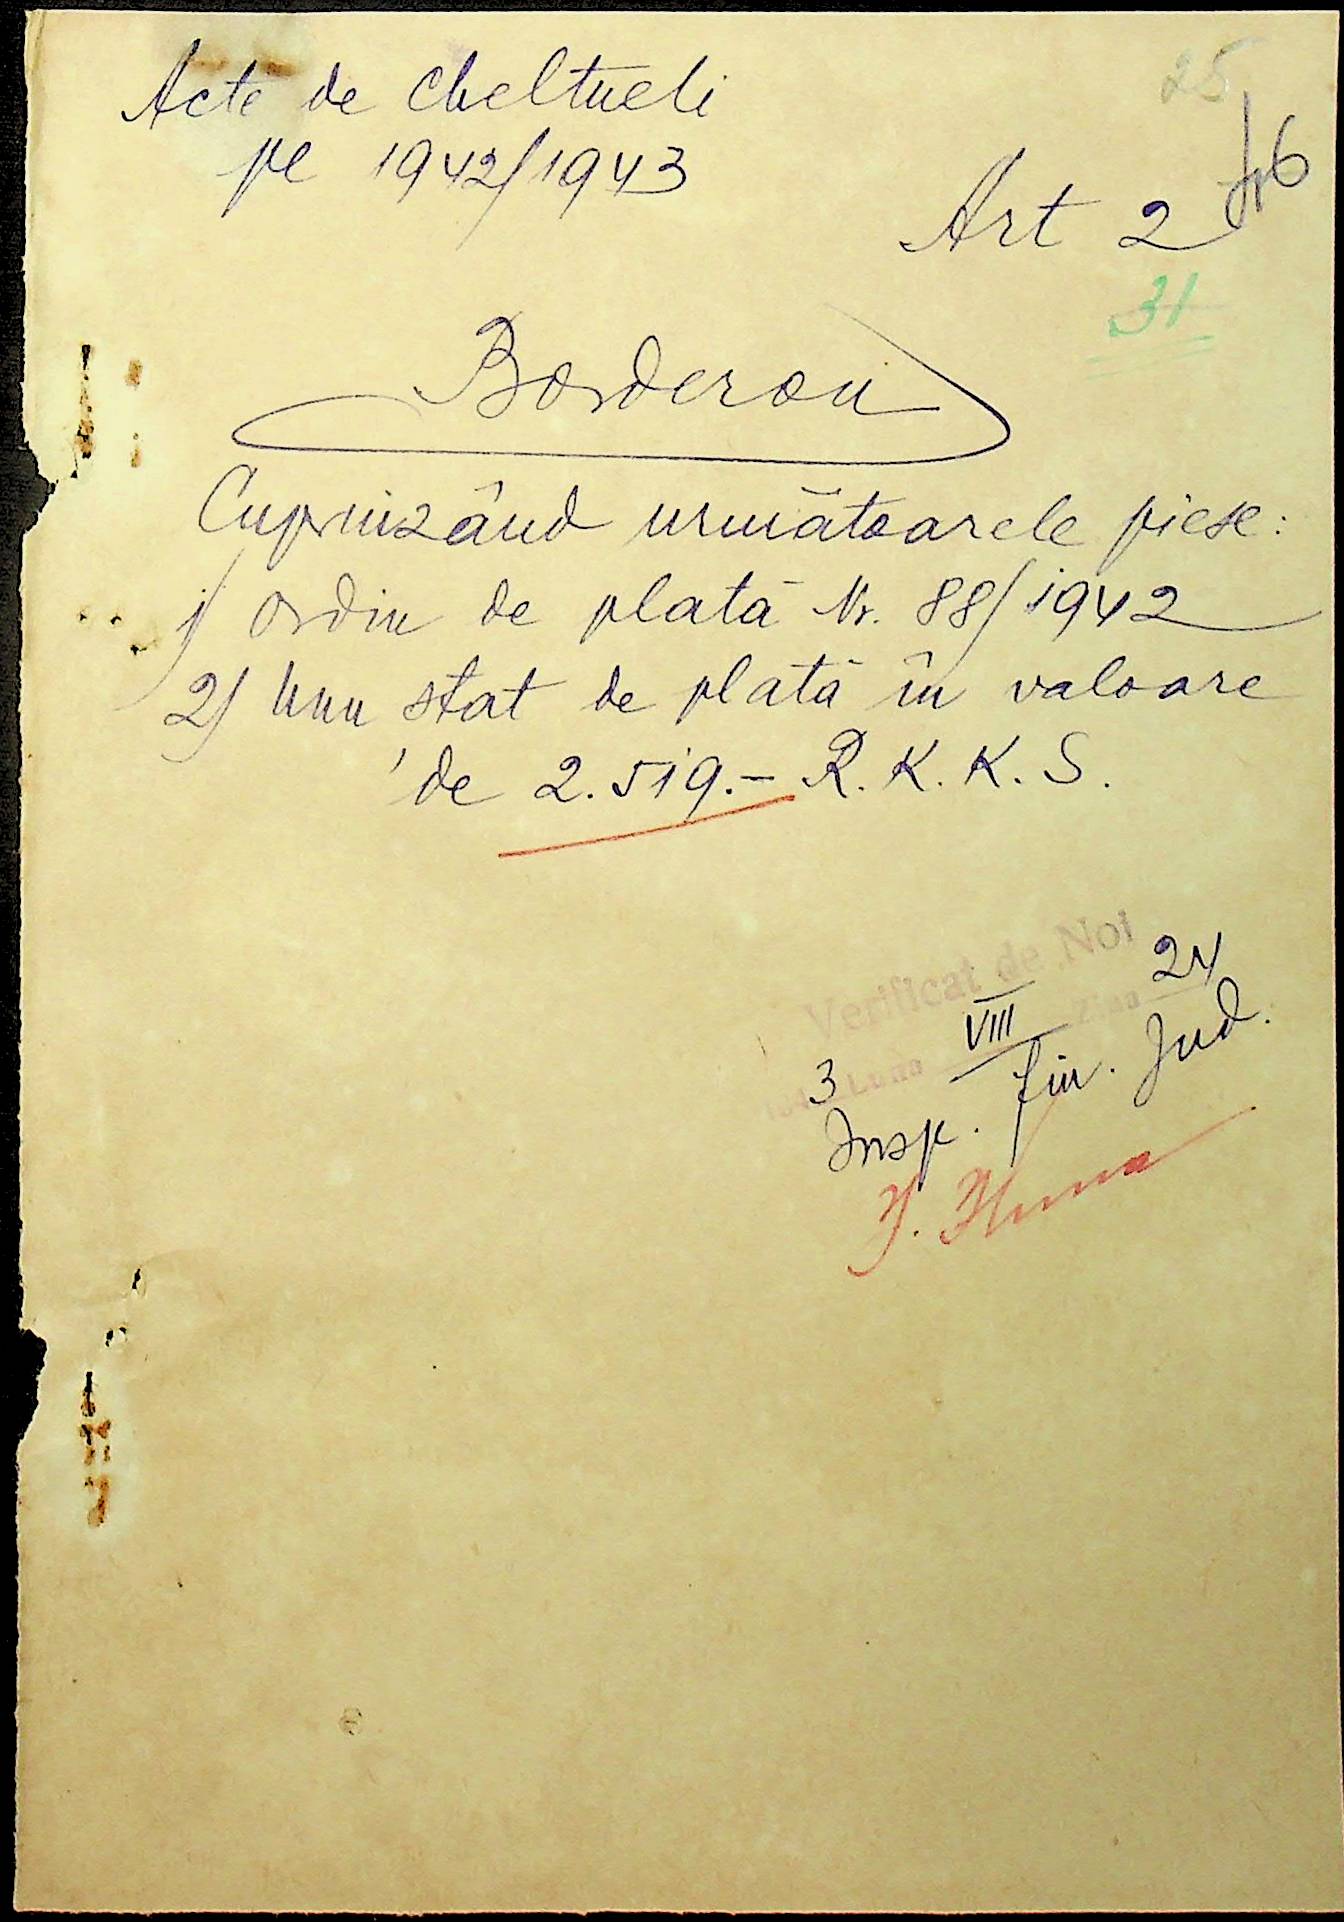 25
Acte de cheltueli
pe 1942/1943
Art 2
31
Borderou
Cuprinzând următoarele piese:
1/ ordin de plată Nr. 88/1942
2/ Unu stat de plată în valoare
de 2.519.- R. K. K. S.
Verificat de Noi
1943 Luna VIII Ziua 24
Insp. fin. Jud.